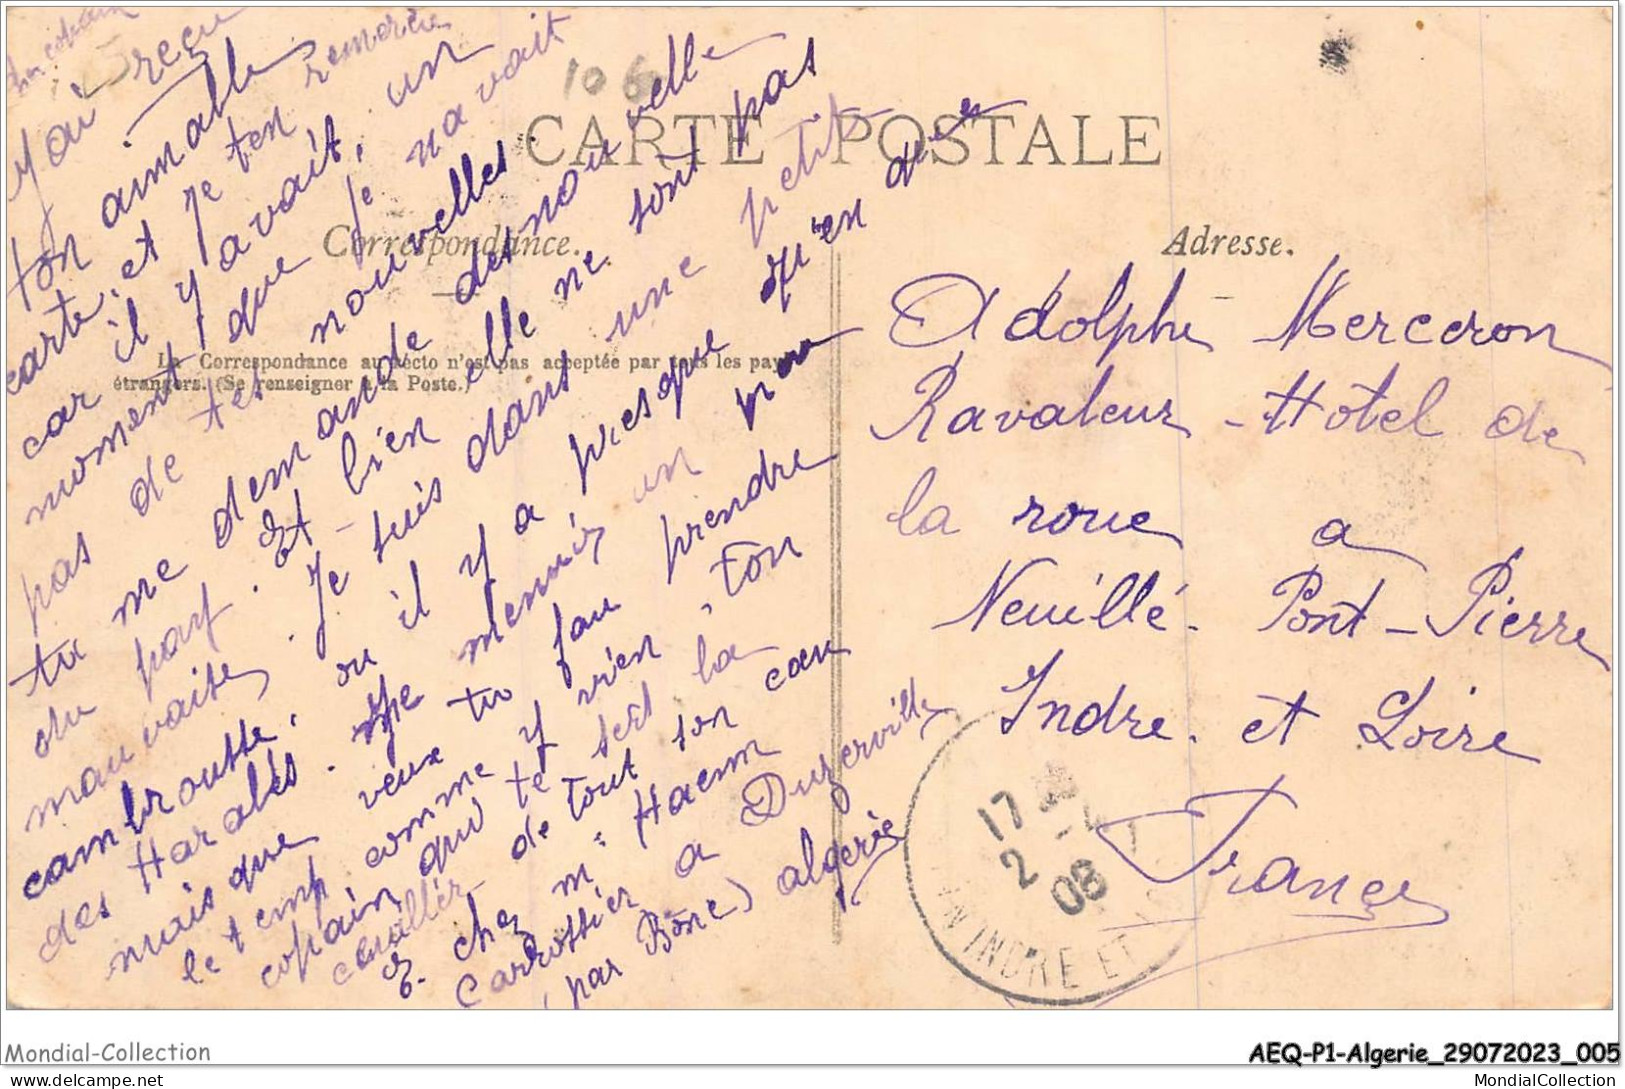 CARTE POSTALE
Correspondance.
Adresse.
La Correspondance au recto n'est pas acceptée par tous les pays
étrangers. (Se renseigner à la Poste.)
106
J'ai reçu
ton aimable
carte. et je ten remercie
car il y avait. un
moment que je navait
pas de tes nouvelles.
tu me demande des nouvelle
du pay. Et bien elle ne sont pas
mauvaise. Je suis dans une petit
cambrousse. ou il y a presque qu'en
des Harabes.
mais que veux tu fau prendre
le temp comme y vien, ton
copain qui te sert la
de tout son cœur
E. chez m. Haenn
Carrossier a Duzerville
(par Bône) algerie
Adolphe Merceron
Ravaleur - Hôtel de
la roue a
Neuillé - Pont - Pierre
Indre et Loire
France
17
2
08
INDRE ET
Mondial-Collection
AEQ-P1-Algerie_29072023_005
delcampe.net
MondialCollection